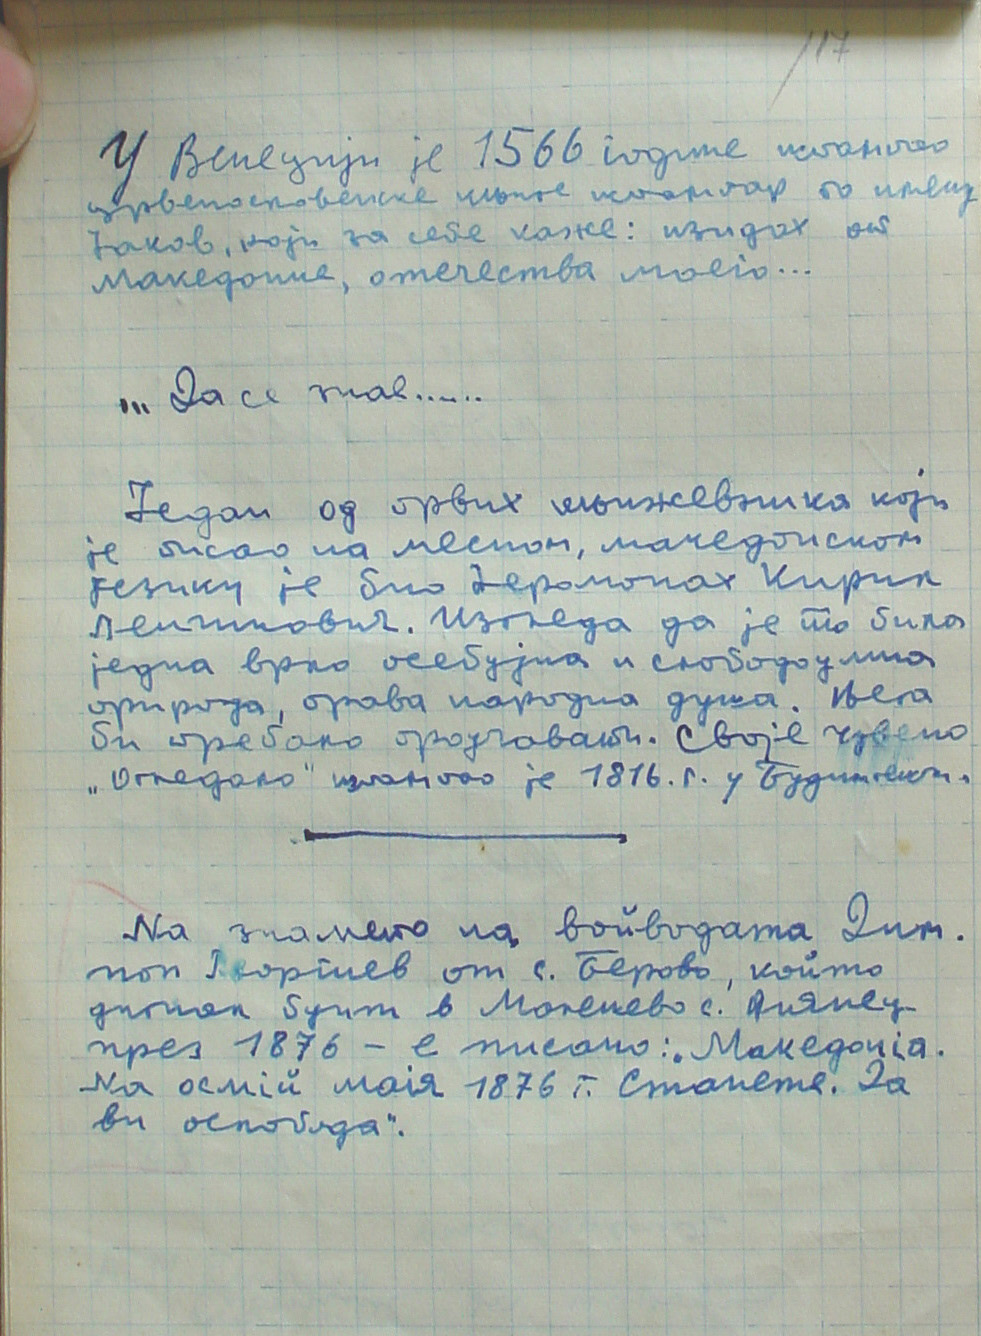 117
У Венецији је 1566 године штампао
црквенословенске књиге штампар по имену
Јаков, који за себе каже: изидох от
Македоние, отечества моего...
... Да се знае......
Један од првих књижевника који
је писао на месном, македонском
језику је био Јеромонах Кирил
Пејчиновић. Изгледа да је то била
једна врло особујна и слободоумна
природа, права народна душа. Њега
би требало проучавати. Своје чувено
„Огледало" штампао је 1816. г. у Будимпешти.
На знамето на войводата Дим.
поп Георгиев от с. Берово, който
дигнал бунт в Малешево с.
през 1876 – е писано: „Македоніа.
На осмій маія 1876 г. Станете. Да
ви ослободя".